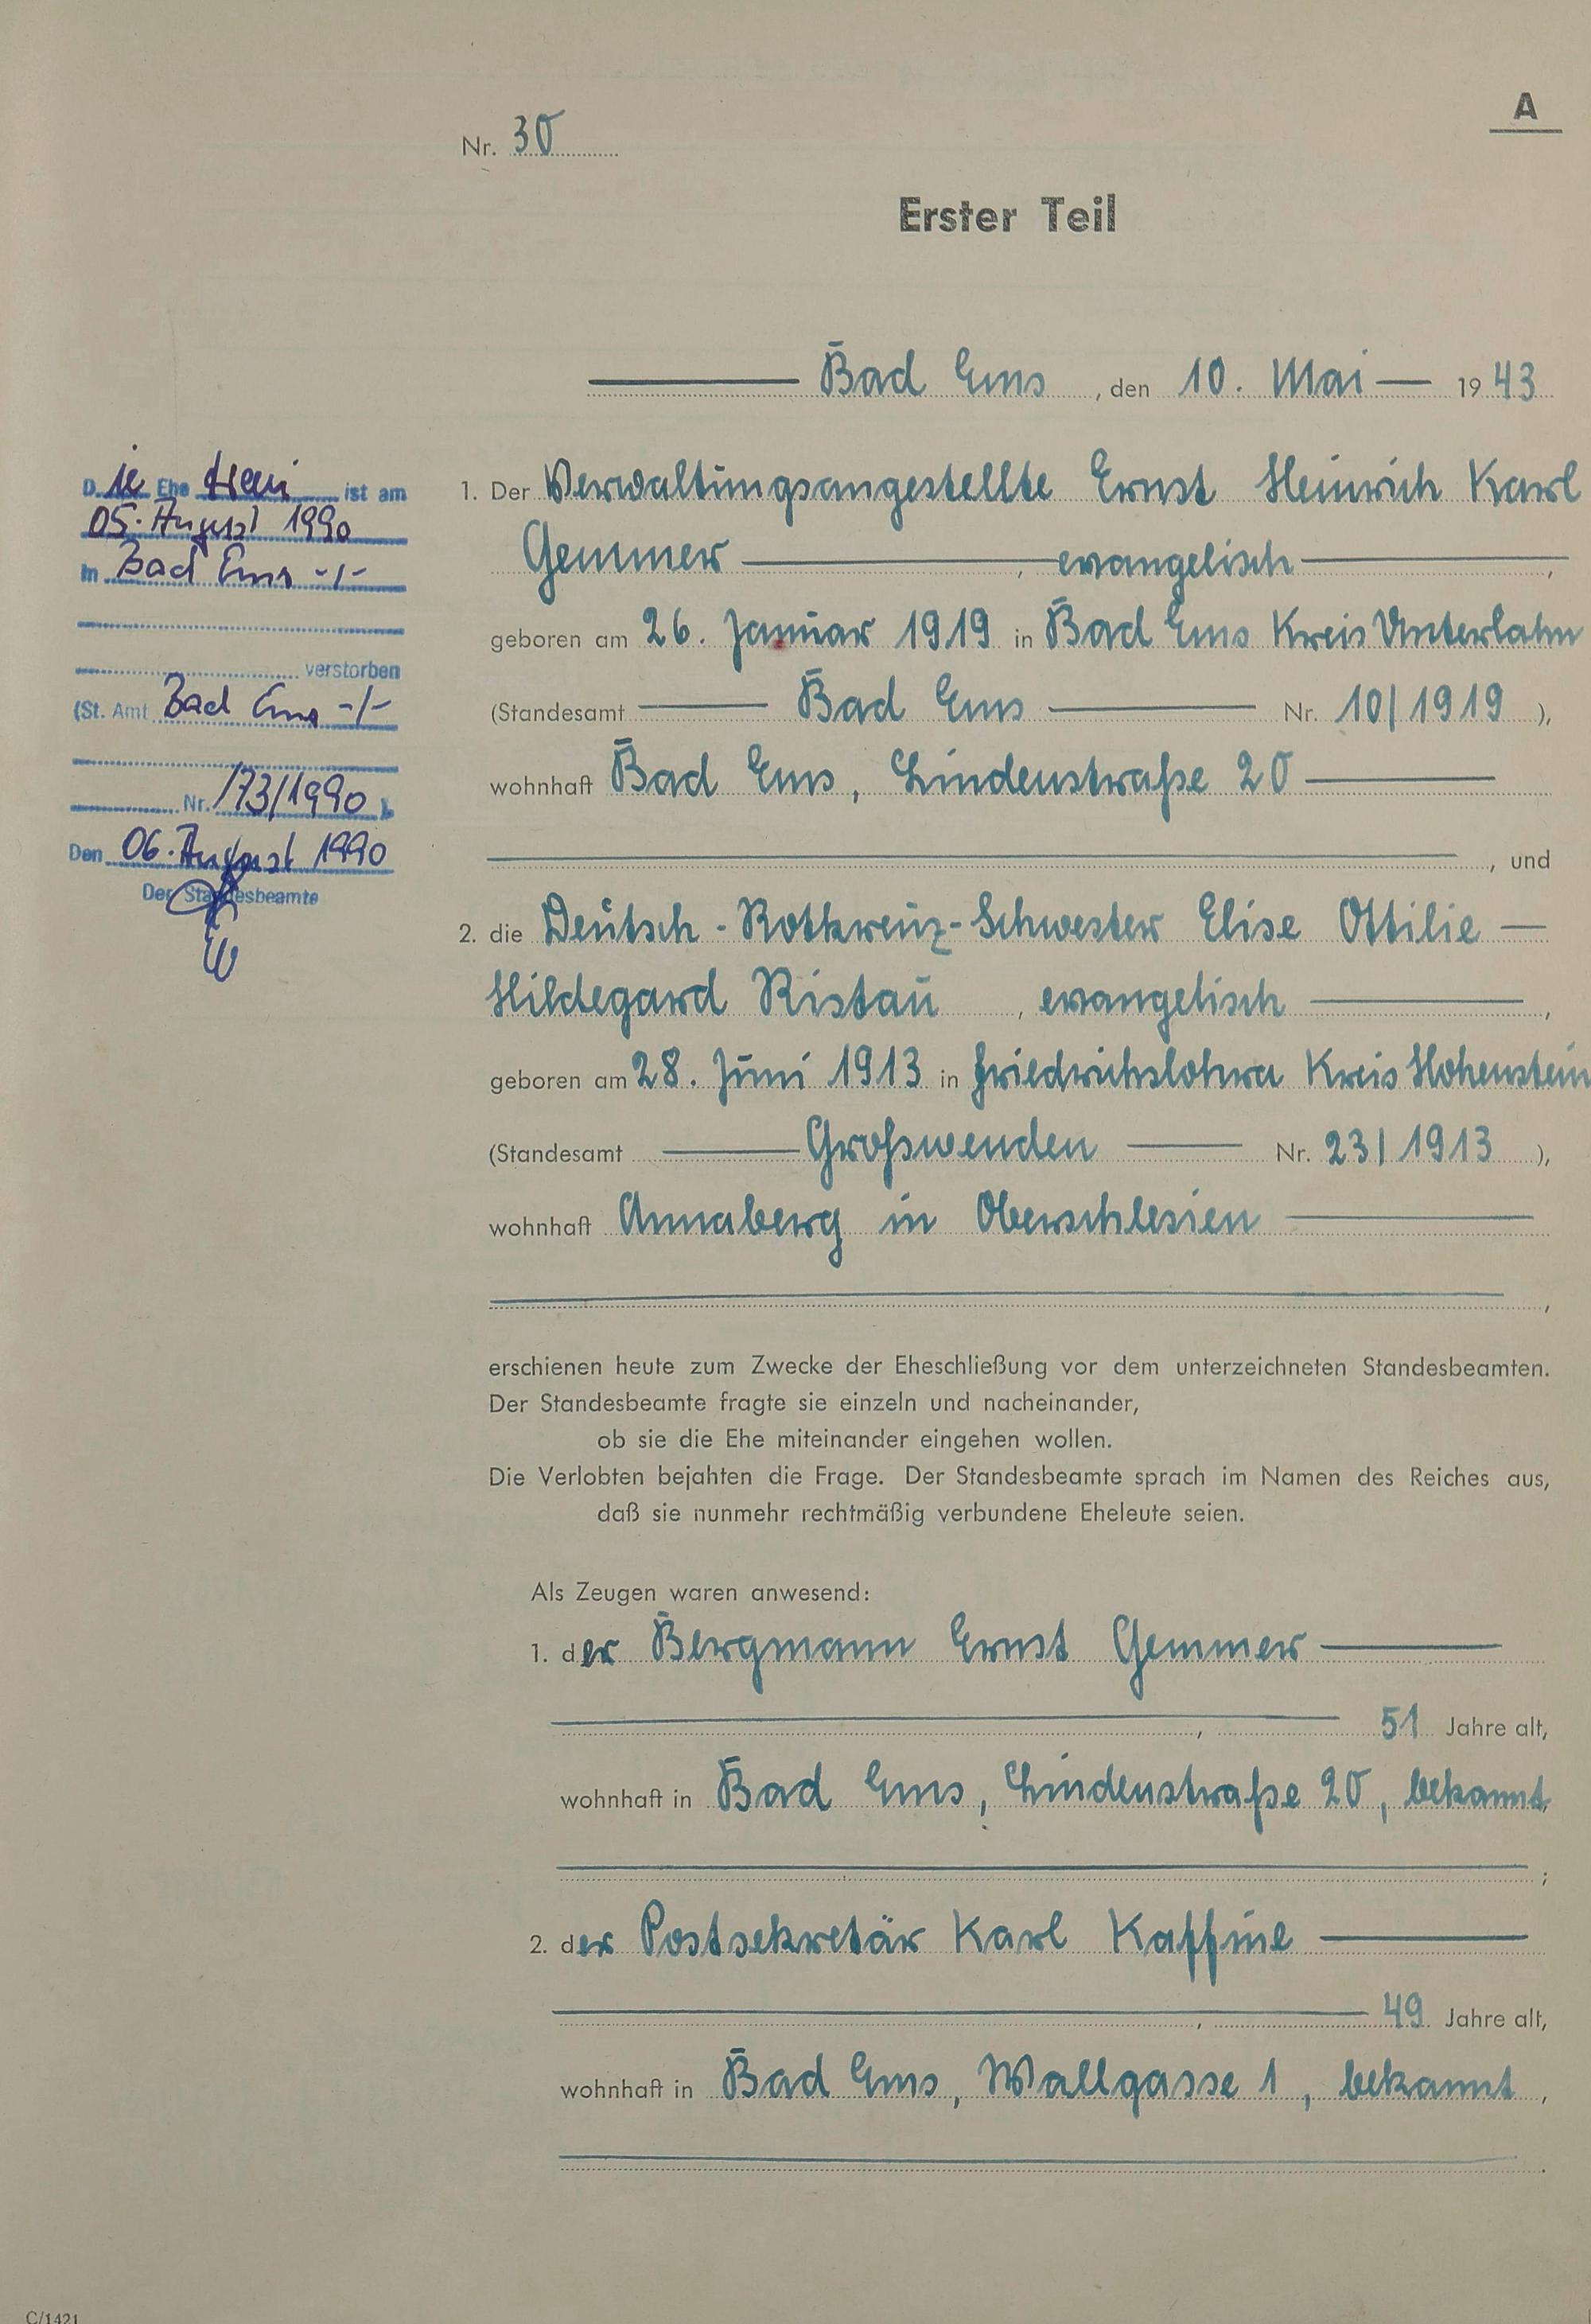 A
Nr. 30
Erster Teil
Bad Ems, den 10. Mai 1943
Die Ehefrau ist am
05. August 1990
in Bad Ems -/-
verstorben
(St. Amt Bad Ems -/-
Nr. 173/1990).
Den 06. August 1990
Der Standesbeamte
1. Der Verwaltungsangestellte Ernst Heinrich Karl
Gemmer, evangelisch,
geboren am 26. Januar 1919 in Bad Ems Kreis Unterlahn
(Standesamt Bad Ems Nr. 10/1919),
wohnhaft Bad Ems, Lindenstraße 20
, und
2. die Deutsch-Rotkreuz-Schwester Elise Ottilie
Hildegard Ristau, evangelisch,
geboren am 28. Juni 1913 in Friedrichslohra Kreis Hohenstein
(Standesamt Großwenden Nr. 23/1913),
wohnhaft Annaberg in Oberschlesien
,
erschienen heute zum Zwecke der Eheschließung vor dem unterzeichneten Standesbeamten.
Der Standesbeamte fragte sie einzeln und nacheinander,
ob sie die Ehe miteinander eingehen wollen.
Die Verlobten bejahten die Frage. Der Standesbeamte sprach im Namen des Reiches aus,
daß sie nunmehr rechtmäßig verbundene Eheleute seien.
Als Zeugen waren anwesend:
1. der Bergmann Ernst Gemmer
, 51 Jahre alt,
wohnhaft in Bad Ems, Lindenstraße 20, bekannt,
;
2. der Postsekretär Karl Kaffine
, 49 Jahre alt,
wohnhaft in Bad Ems, Wallgasse 1, bekannt,
.
C/1421